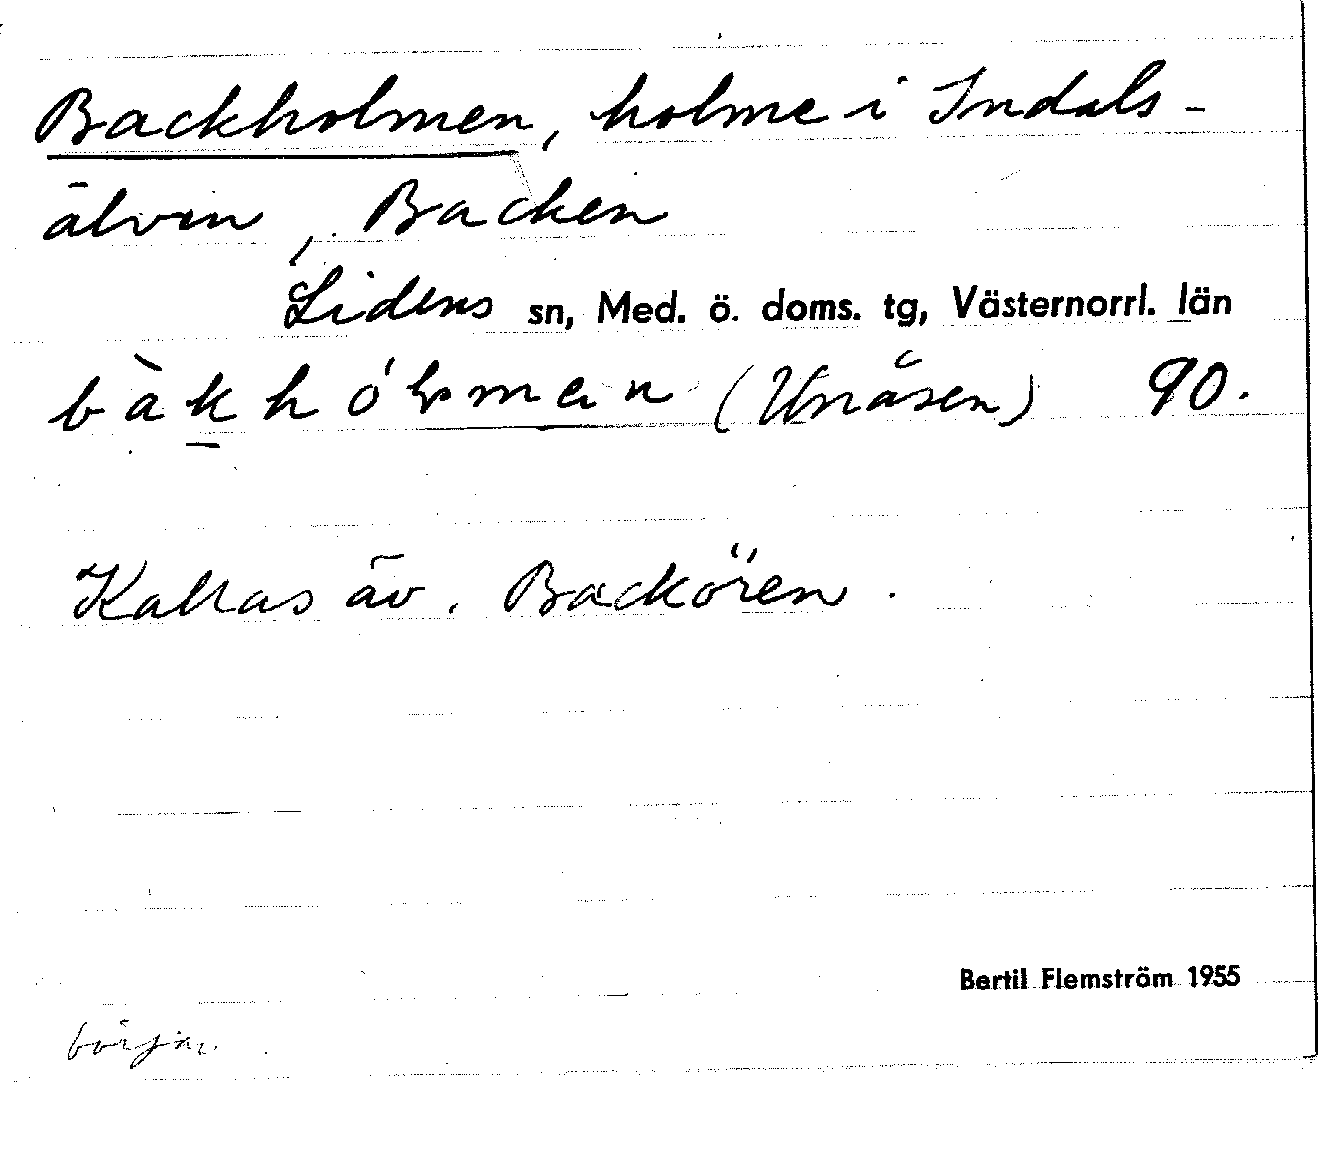 Backholmen, holme i Indals-
älven, Backen
Lidens sn, Med. ö. doms. tg, Västernorrl. län
bàkhólmen (Unåsen) 90.
Kallas äv. Backören.
Bertil Flemström 1955
börjar.